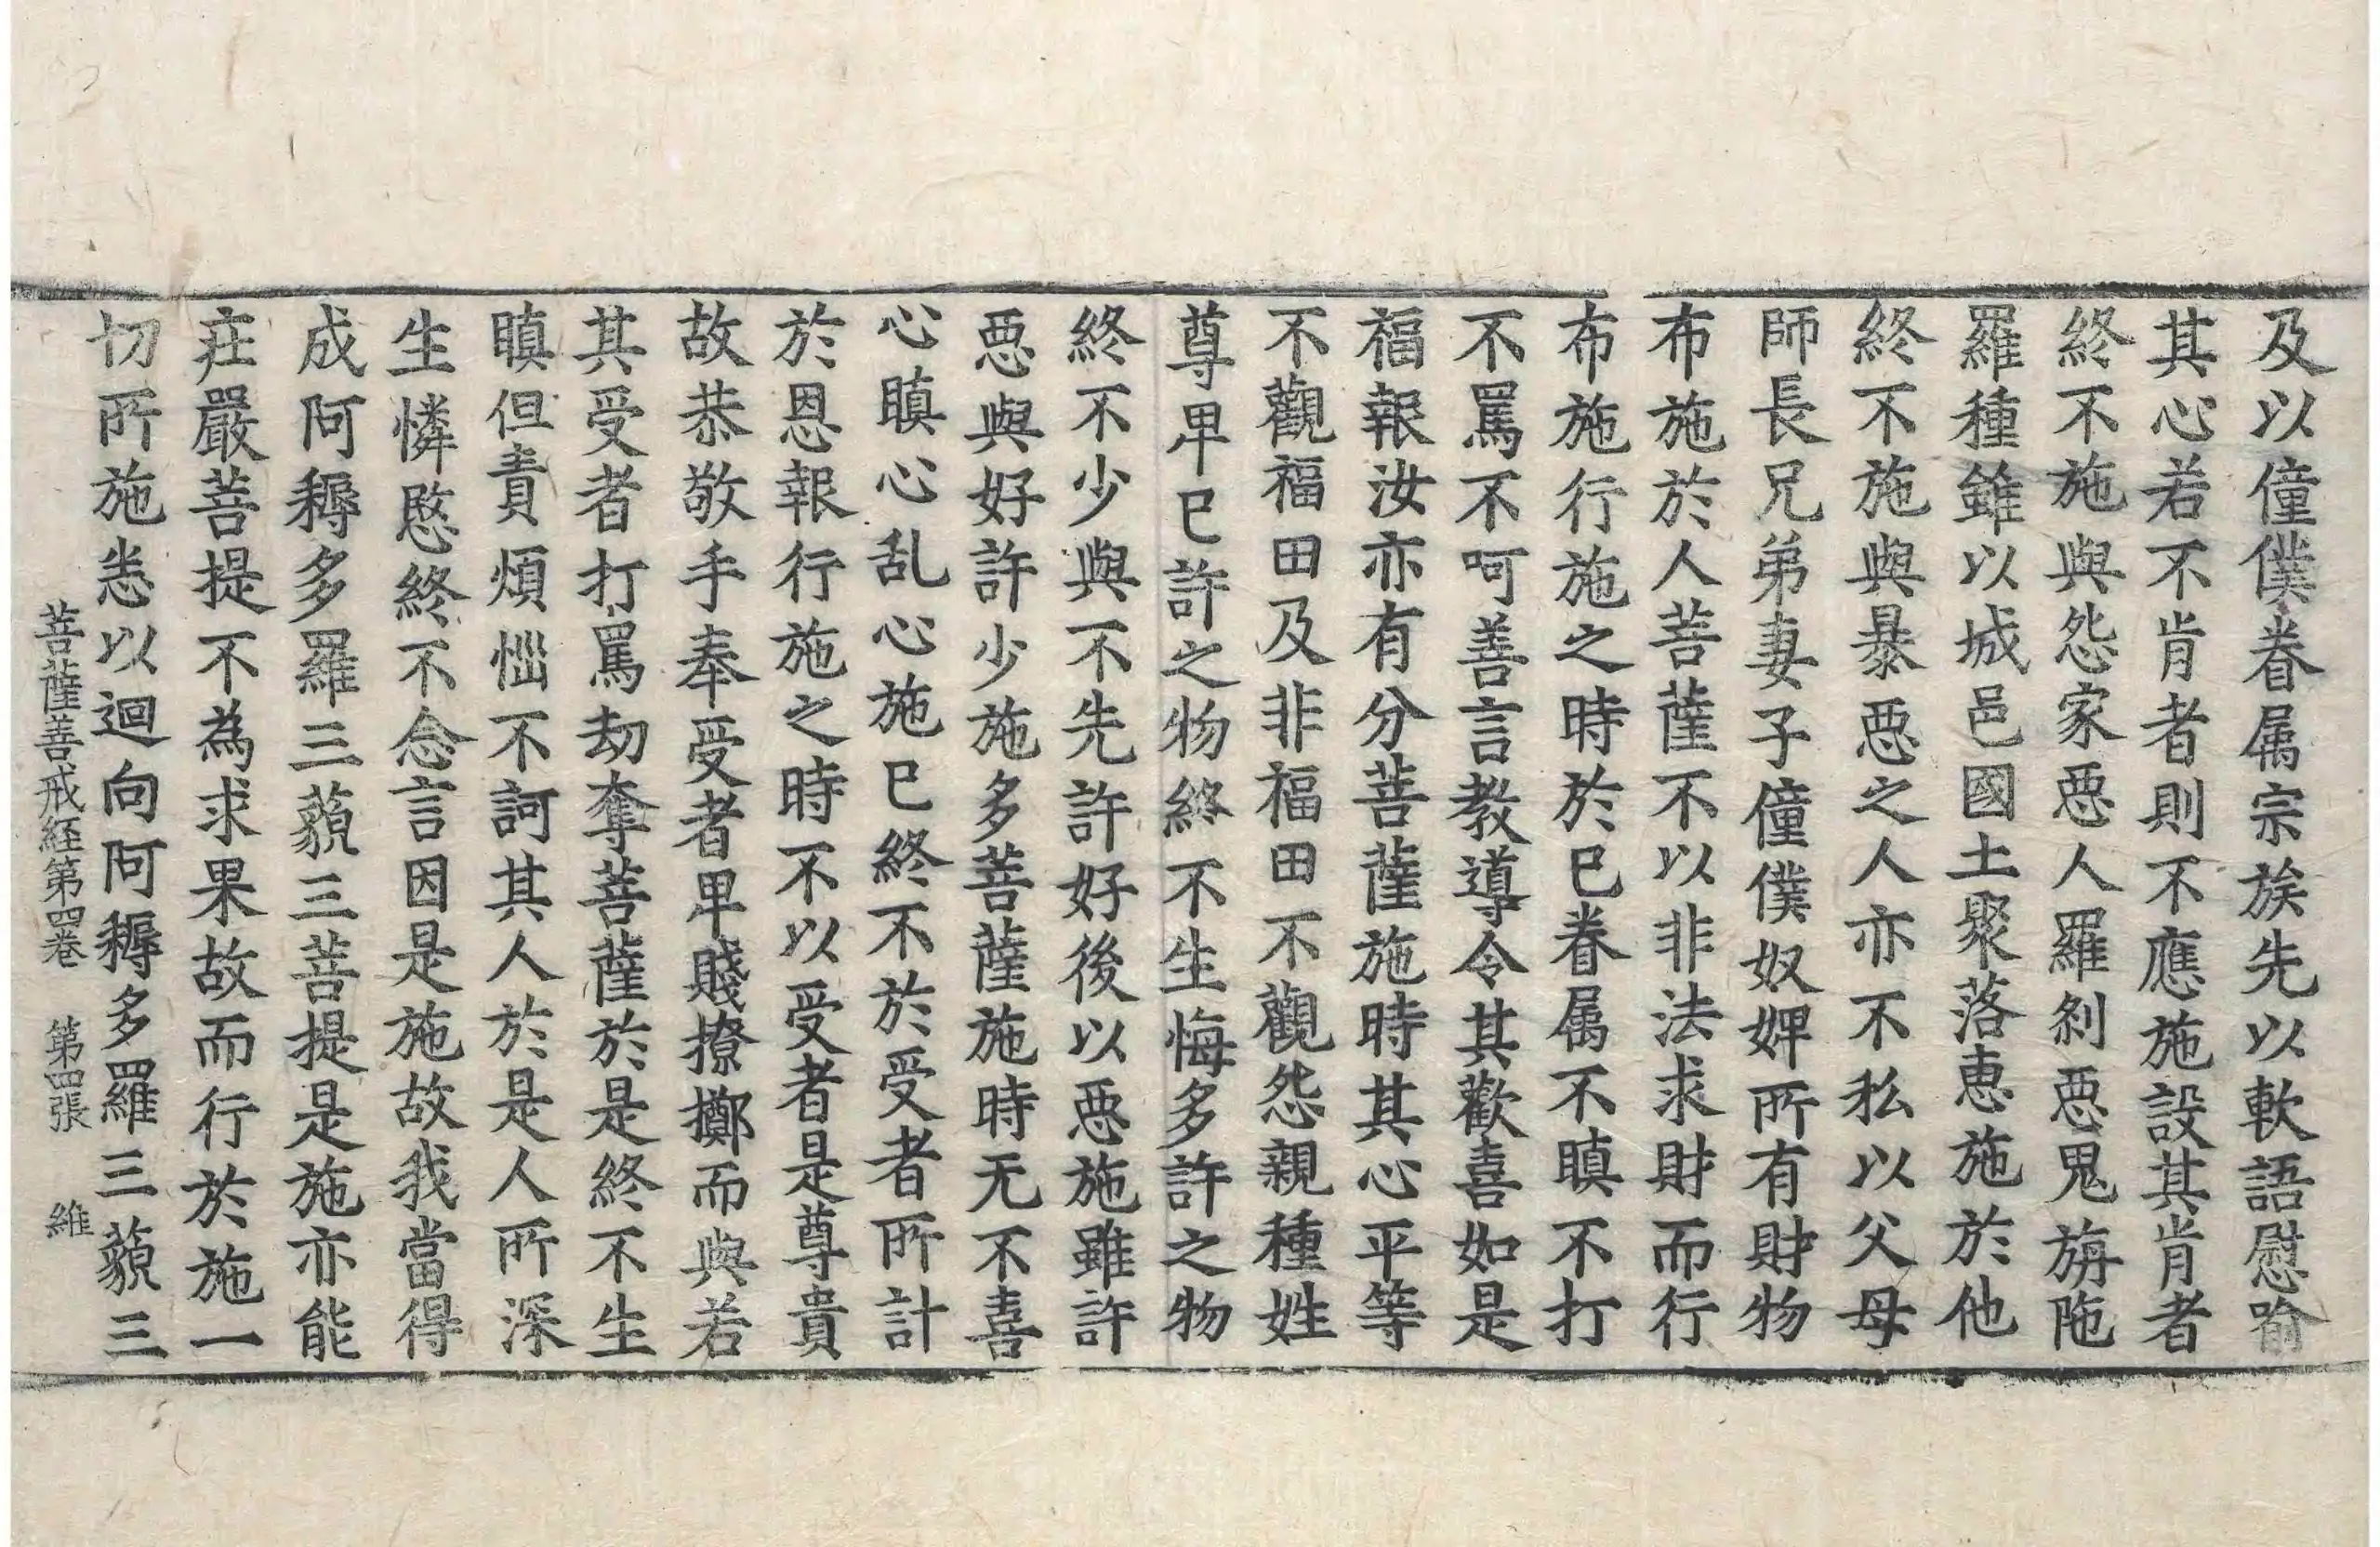 及以僮僕眷属宗族先以軟語慰喻
其心若不肯者則不應施設其肯者
終不施與怨家惡人羅剎惡鬼旃陁
羅種雖以城邑國土聚落惠施於他
終不施與暴惡之人亦不私以父母
師長兄弟妻子僮僕奴婢所有財物
布施於人菩薩不以非法求財而行
布施行施之時於己眷属不瞋不打
不罵不呵善言教導令其歡喜如是
福報汝亦有分菩薩施時其心平等
不觀福田及非福田不觀怨親種姓
尊卑已許之物終不生悔多許之物
終不少與不先許好後以惡施雖許
惡與好許少施多菩薩施時无不喜
心瞋心乱心施已終不於受者所計
於恩報行施之時不以受者是尊貴
故恭敬手奉受者卑賤撩擲而與若
其受者打罵劫奪菩薩於是終不生
瞋但責煩惱不訶其人於是人所深
生憐愍終不念言因是施故我當得
成阿耨多羅三藐三菩提是施亦能
莊嚴菩提不為求果故而行於施一
切所施悉以迴向阿耨多羅三藐三
菩薩善戒経第四卷　第四張　維